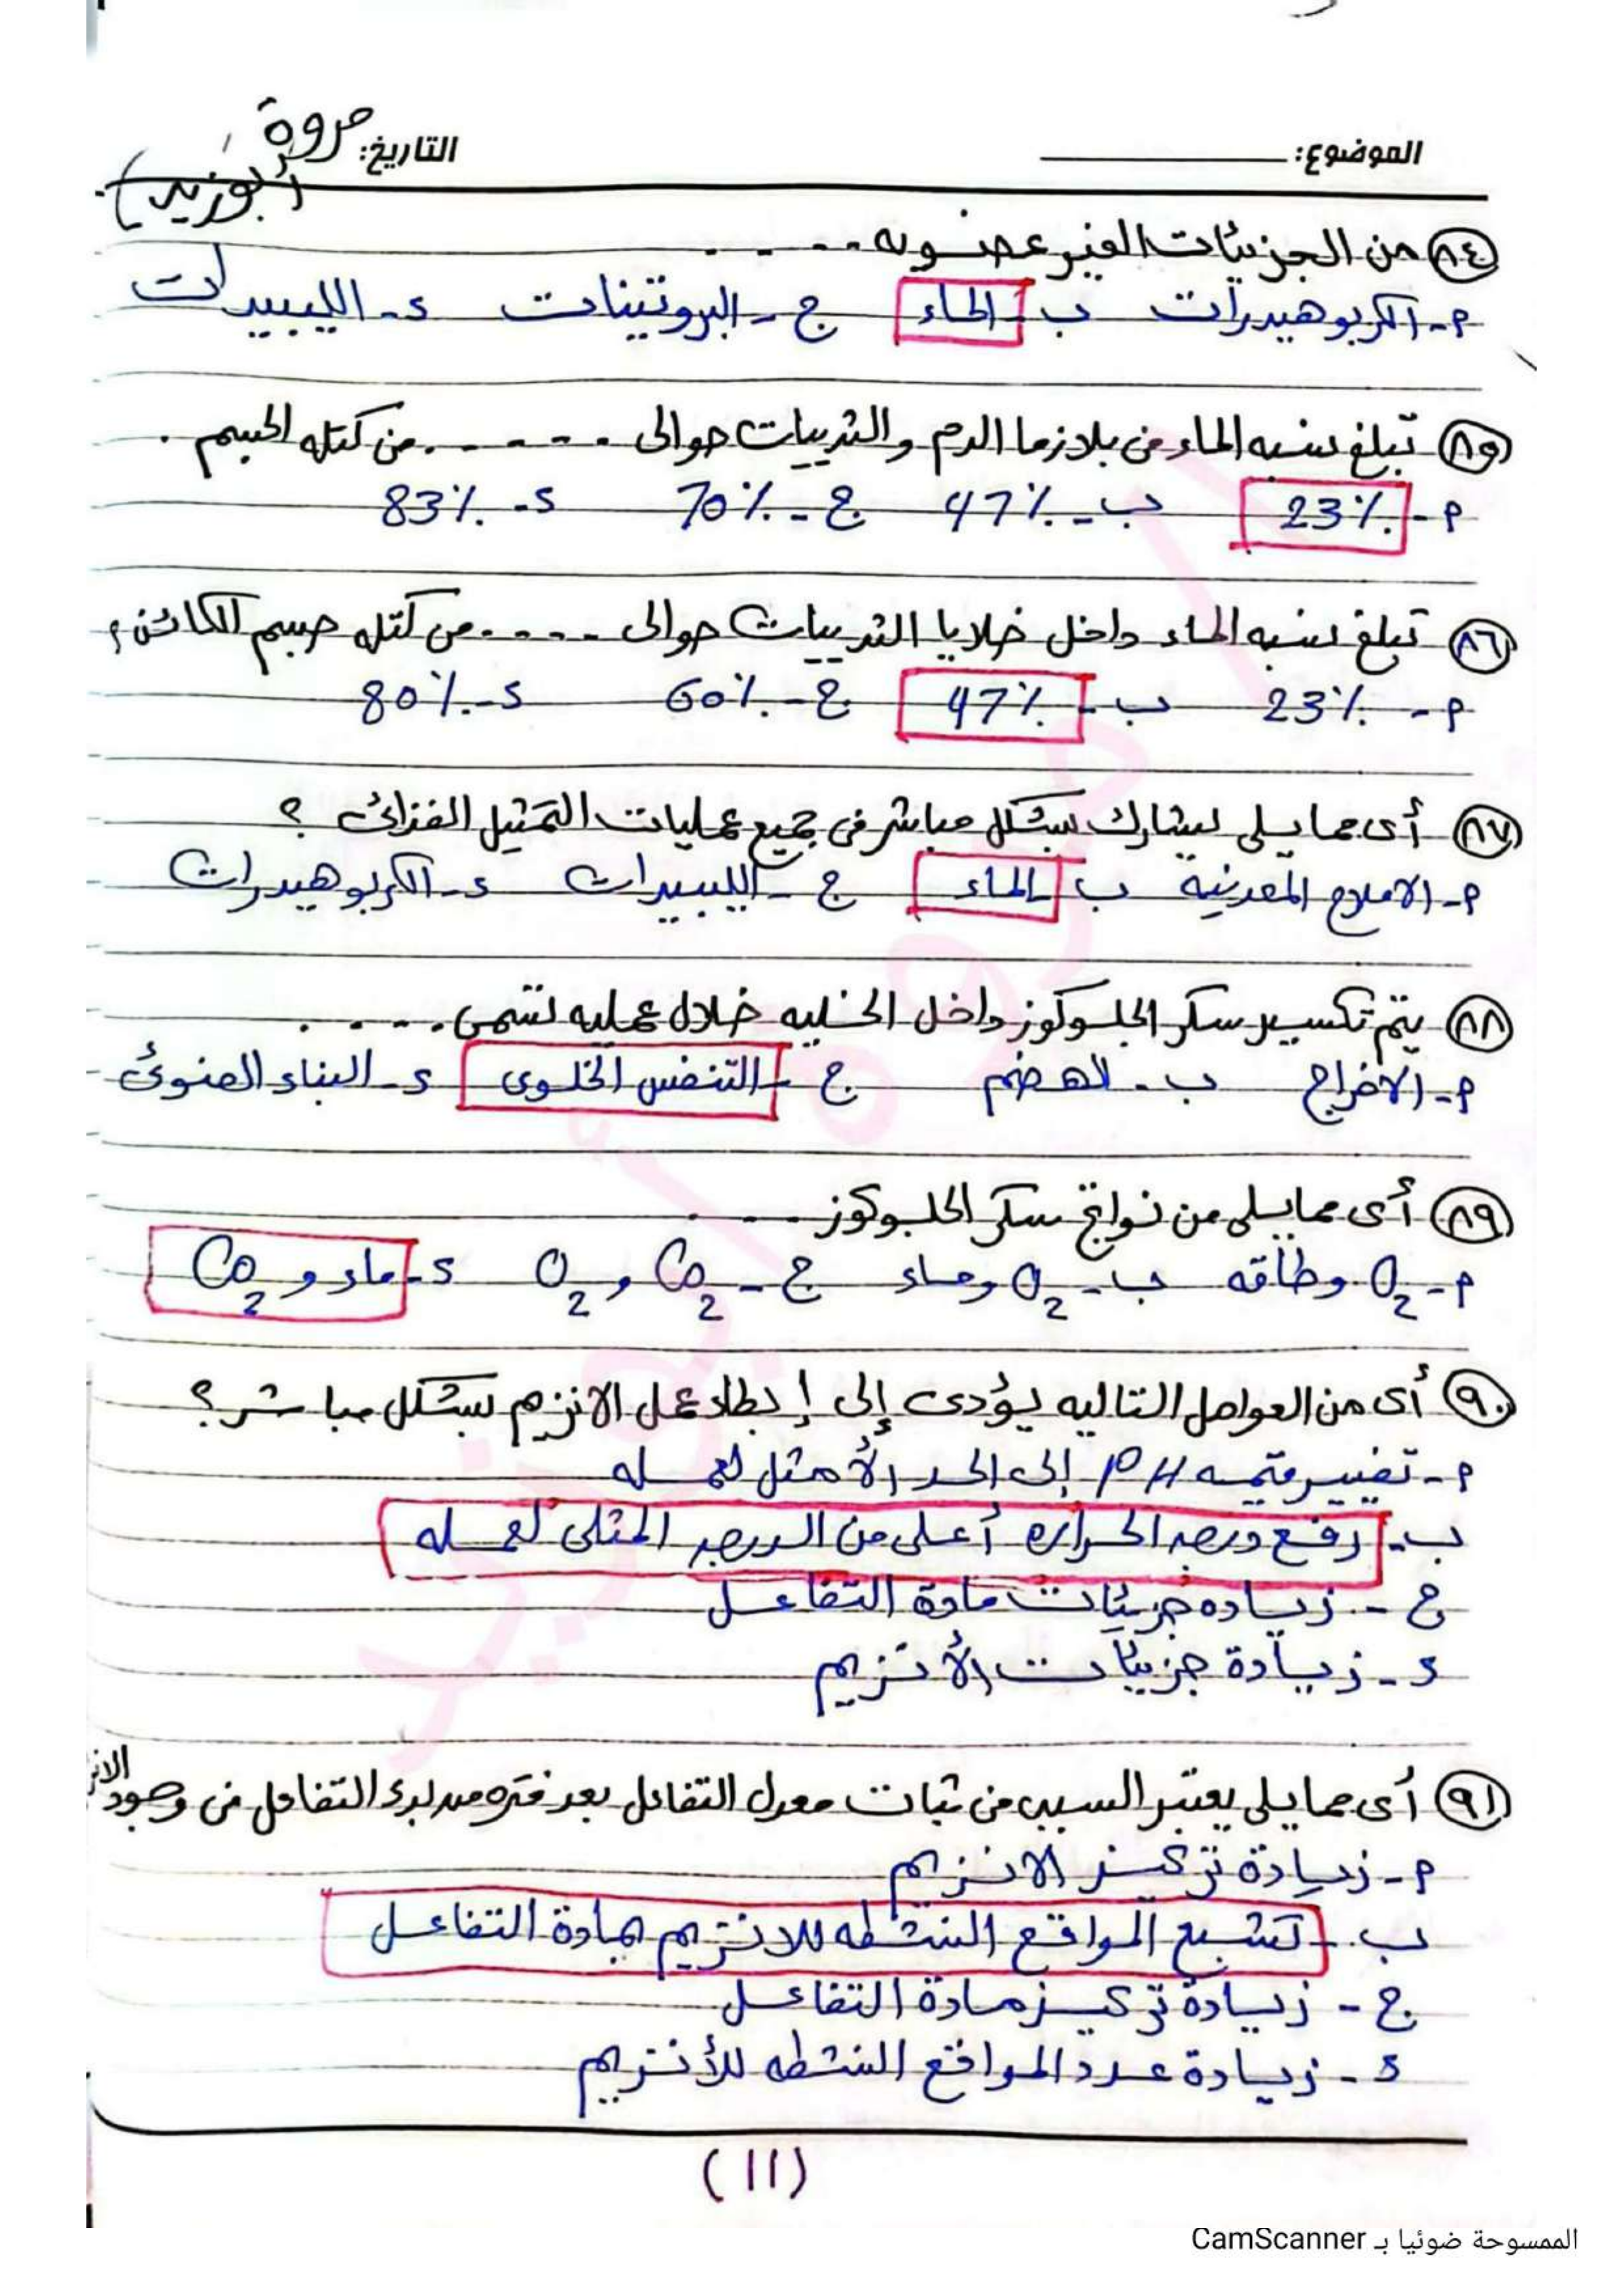 الموضوع:
التاريخ:
مروة
أبوزيد
٨٤ من الجزيئات الغير عضويه ....
م- الكربوهيدرات ب- الماء ج- البروتينات د- الليبيدات
٨٥ تبلغ نسبه الماء فى بلازما الدم والثدييات حوالى ..... من كتله الجسم .
م- 23٪ ب- 47٪ ج- 70٪ د- 83٪
٨٦ تبلغ نسبه الماء داخل خلايا الثدييات حوالى ..... من كتله جسم الكائن؟
م- 23٪ ب- 47٪ ج- 60٪ د- 80٪
٨٧ أى مما يلى يشارك بشكل مباشر فى جميع عمليات التمثيل الغذائى ؟
م- الاملاح المعدنيه ب- الماء ج- الليبيدات د- الكربوهيدرات
٨٨ يتم تكسير سكر الجلوكوز داخل الخليه خلال عمليه تسمى .....
م- الاخراج ب- الهضم ج- التنفس الخلوى د- البناء الضوئى
٨٩ أى مما يلى من نواتج سكر الجلوكوز .....
م- O2 وطاقه ب- O2 وماء ج- Co2 و O2 د- ماء و Co2
٩٠ أى من العوامل التاليه يؤدى إلى إبطاء عمل الانزيم بشكل مباشر؟
م- تغيير قيمه PH إلى الحد الأمثل لعمله
ب- رفع درجه الحراره أعلى من الدرجه المثلى لعمله
ج- زياده جزيئات مادة التفاعل
د- زيادة جزيئات الأنزيم
٩١ أى مما يلى يعتبر السبب فى ثبات معدل التفاعل بعد فتره من بدء التفاعل فى وجود
م- زيادة تركيز الانزيم
ب- تشبع المواقع النشطه للانزيم بمادة التفاعل
ج- زيادة تركيز مادة التفاعل
د- زيادة عدد المواقع النشطه للأنزيم
(11)
الممسوحة ضوئيا بـ CamScanner